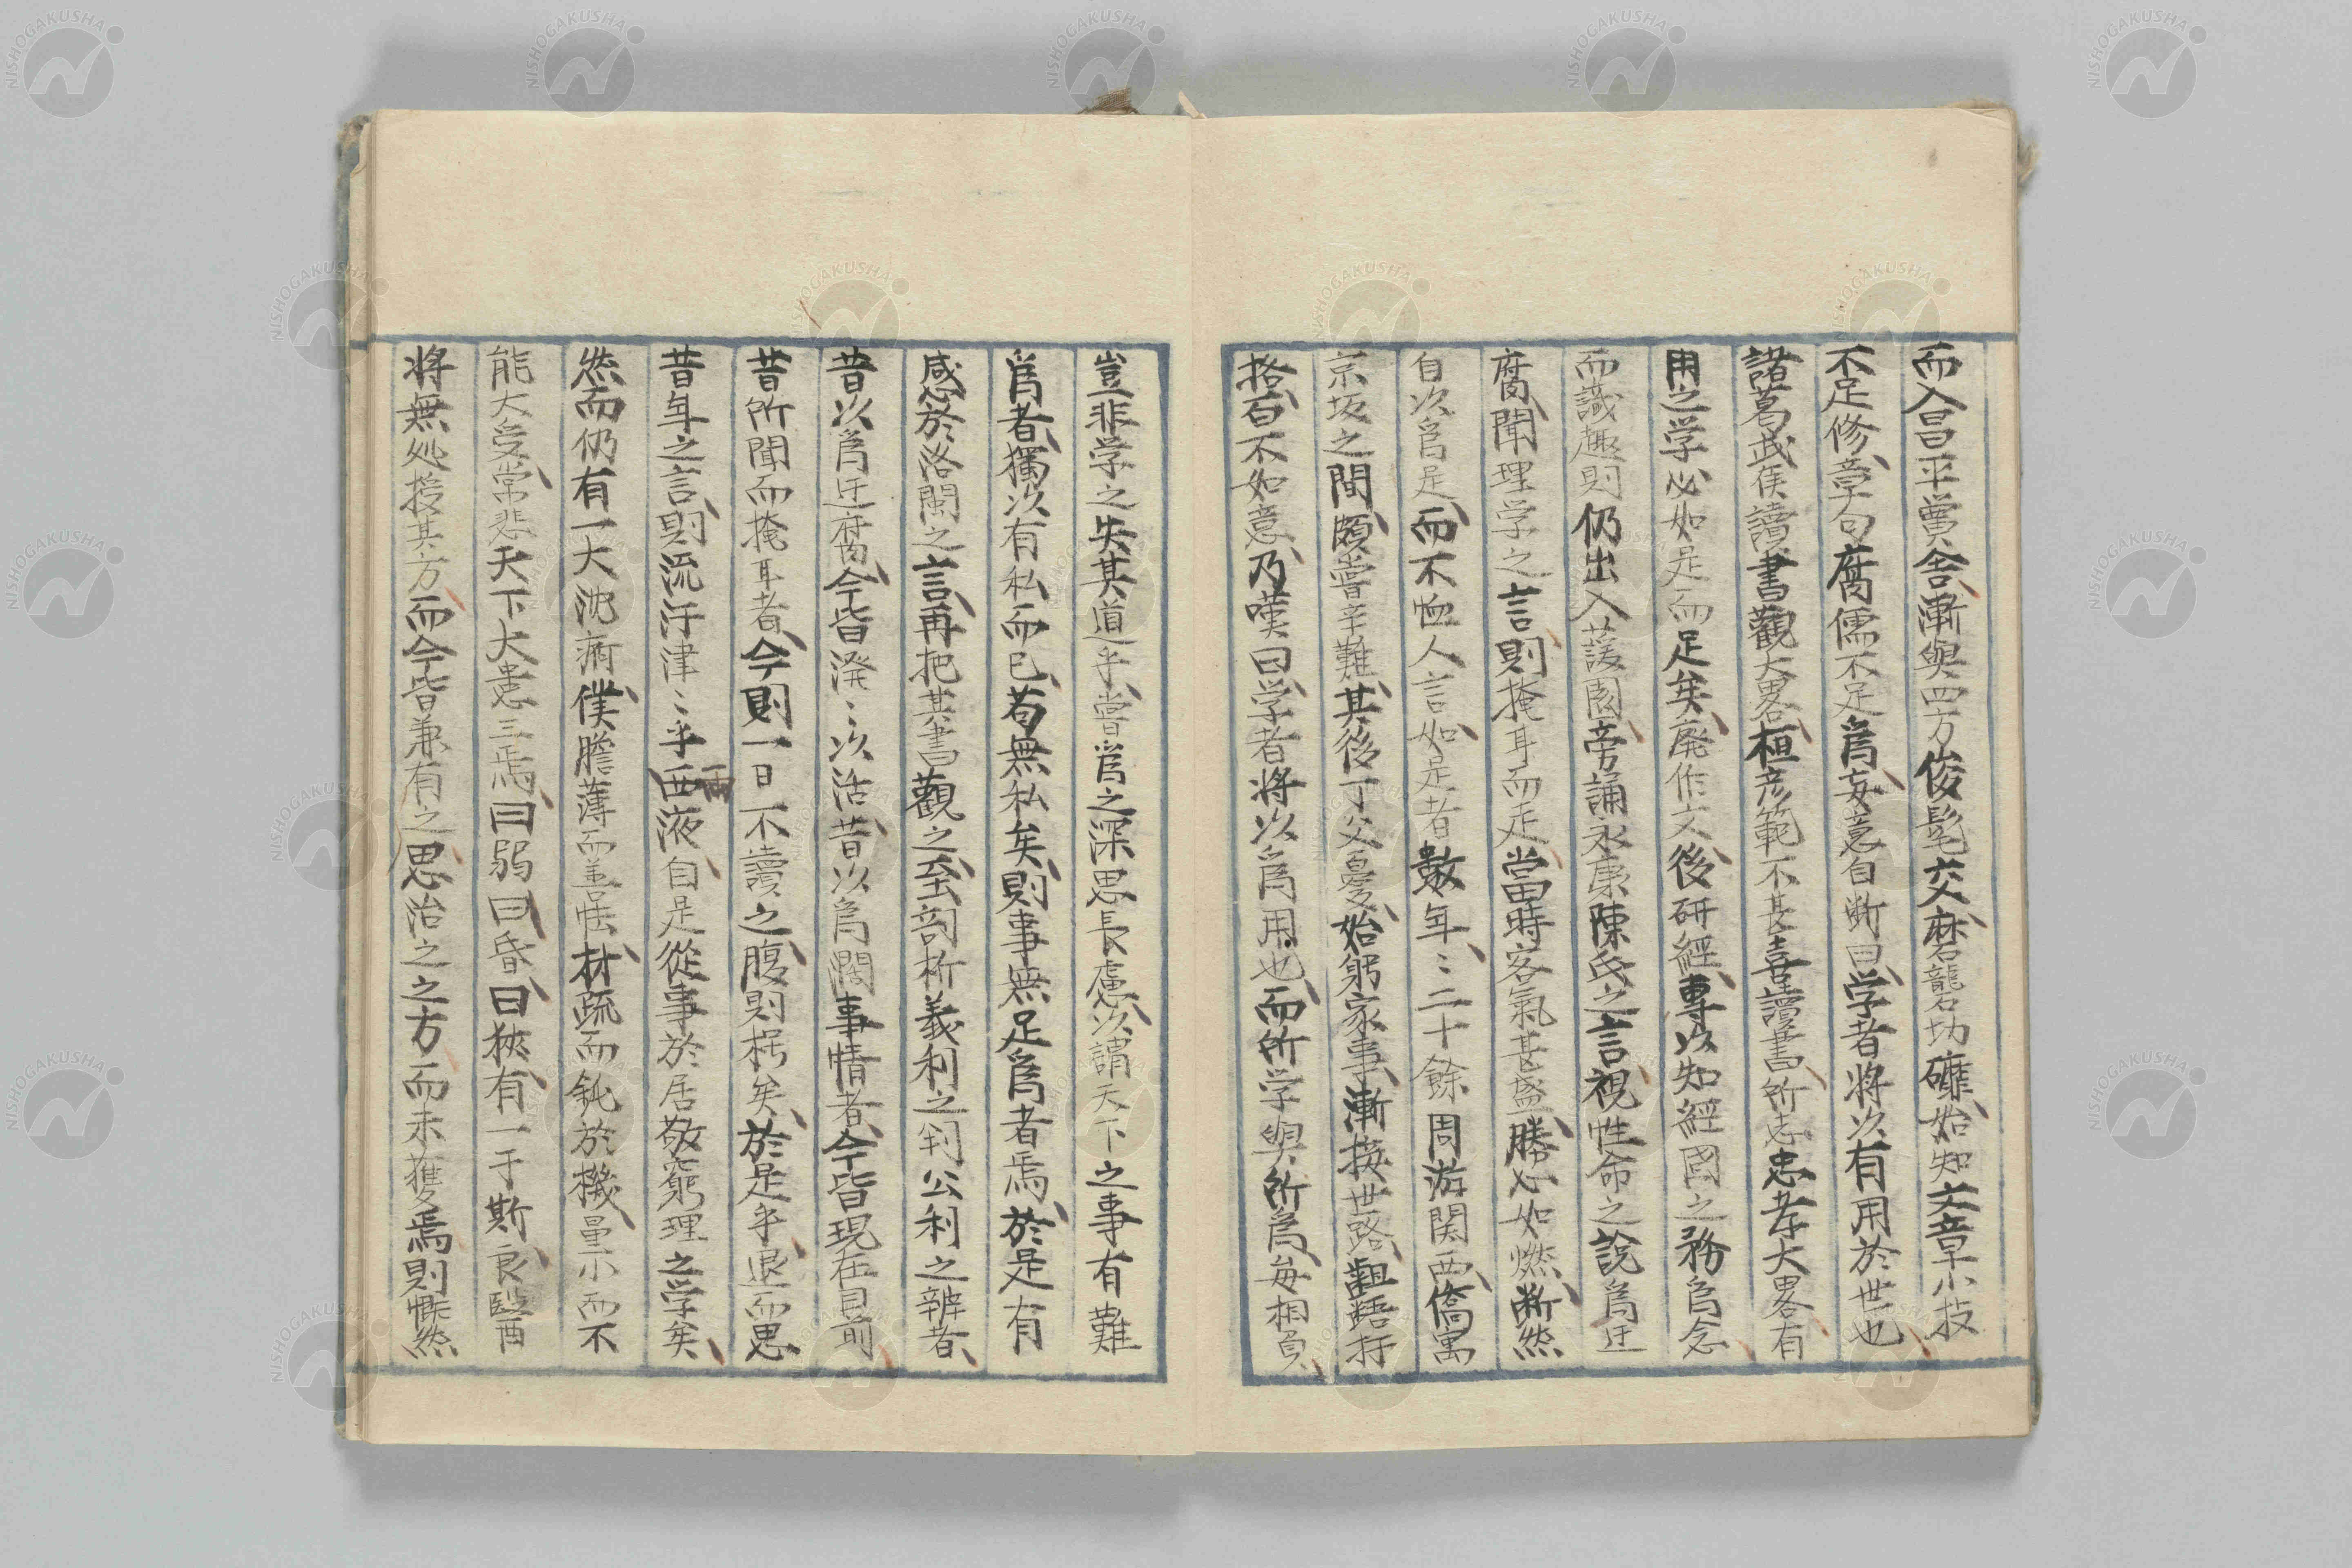 而入昌平黌舍漸與四方俊髦交磨礱切礲始知文章小技
不足修章句腐儒不足爲妄意自断曰学者将以有用於世也
諸葛武侯讀書觀大畧桓彦範不甚喜讀書所志忠孝大畧有
用之学必如是而足矣廃作文後研經專以知經國之務爲念
而識趣則仍出入蘐園旁誦永康陳氏之言視性命之說爲迂
腐聞理学之言則掩耳而走當時客氣甚盛勝心如燃断然
自以爲是而不恤人言如是者数年〻二十餘周游関西僑寓
京坂之間頗嘗辛難其後丁父憂始躬家事漸接世路齟齬扞
挌百不如意乃嘆曰学者将以爲用也而所学與所爲毎相負
豈非学之失其道乎嘗爲之深思長慮以謂天下之事有難
爲者獨以有私而已苟無私矣則事無足爲者焉於是有
感於洛閩之言再把其書觀之至剖析義利之判公利之辨者
昔以爲迂腐今皆潑〻以活昔以爲濶事情者今皆現在目前
昔所聞而掩耳者今則一日不讀之腹則枵矣於是乎退而思
昔年之言則流汗津〻乎両液自是從事於居敬窮理之学矣
然而仍有一大沈痾僕膽薄而善怯材疏而鈍於機量小而不
能大受常悲天下大患三焉曰弱曰昏曰狹有一于斯良毉西
将無処授其方而今皆兼有之思治之之方而未獲焉則慨然